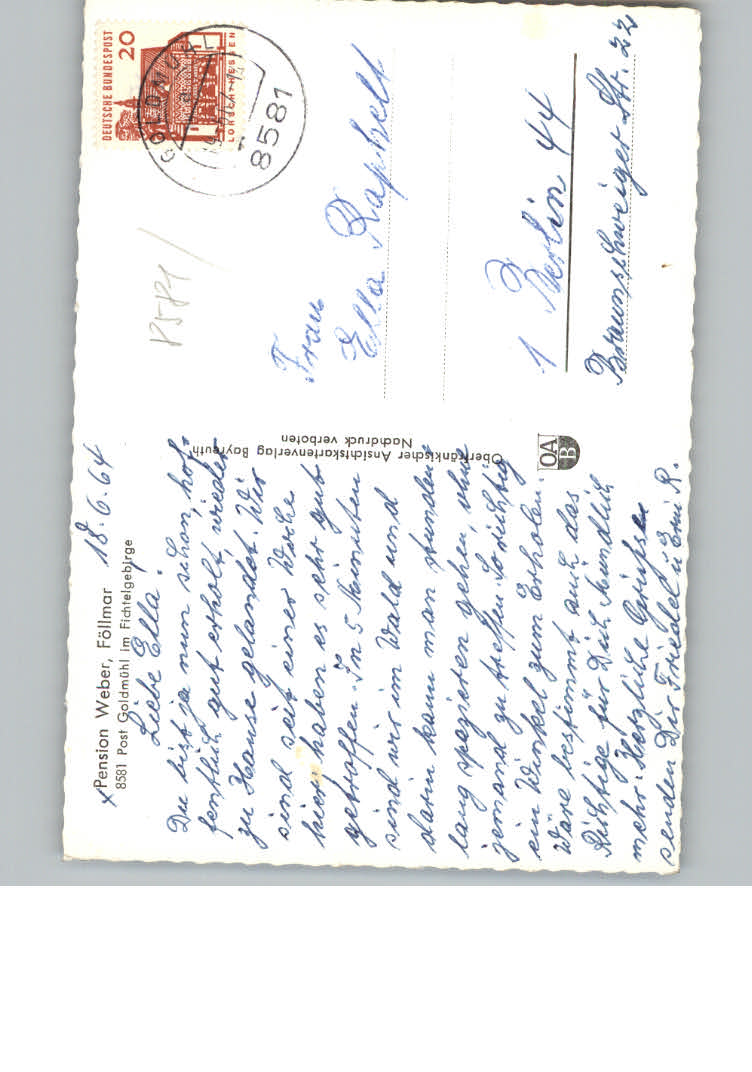 x Pension Weber, Föllmar
8581 Post Goldmühl im Fichtelgebirge
18.6.64
Liebe Ella!
Du bist ja nun schon, hof-
fentlich gut erholt, wieder
zu Hause gelandet. Wir
sind seit einer Woche
hier, haben es sehr gut
getroffen. In 5 Minuten
sind wir im Wald und
darin kann man stunden
lang spazieren gehen, ohne
jemand zu treffen. So richtig
ein Winkel zum Erholen.
Wäre bestimmt auch das
Richtige für Dich. Mündlich
mehr. Herzliche Grüsse
senden Dir Friedel u. Erni R.
Oberfränkischer Ansichtskartenverlag Bayreuth
Nachdruck verboten
OA
B
DEUTSCHE BUNDESPOST
20
LORSCH/HESSEN
GOLDMÜHL
8581
8581
Frau
Ella Raphelt
1 Berlin 44
Braunschweiger Str. 22